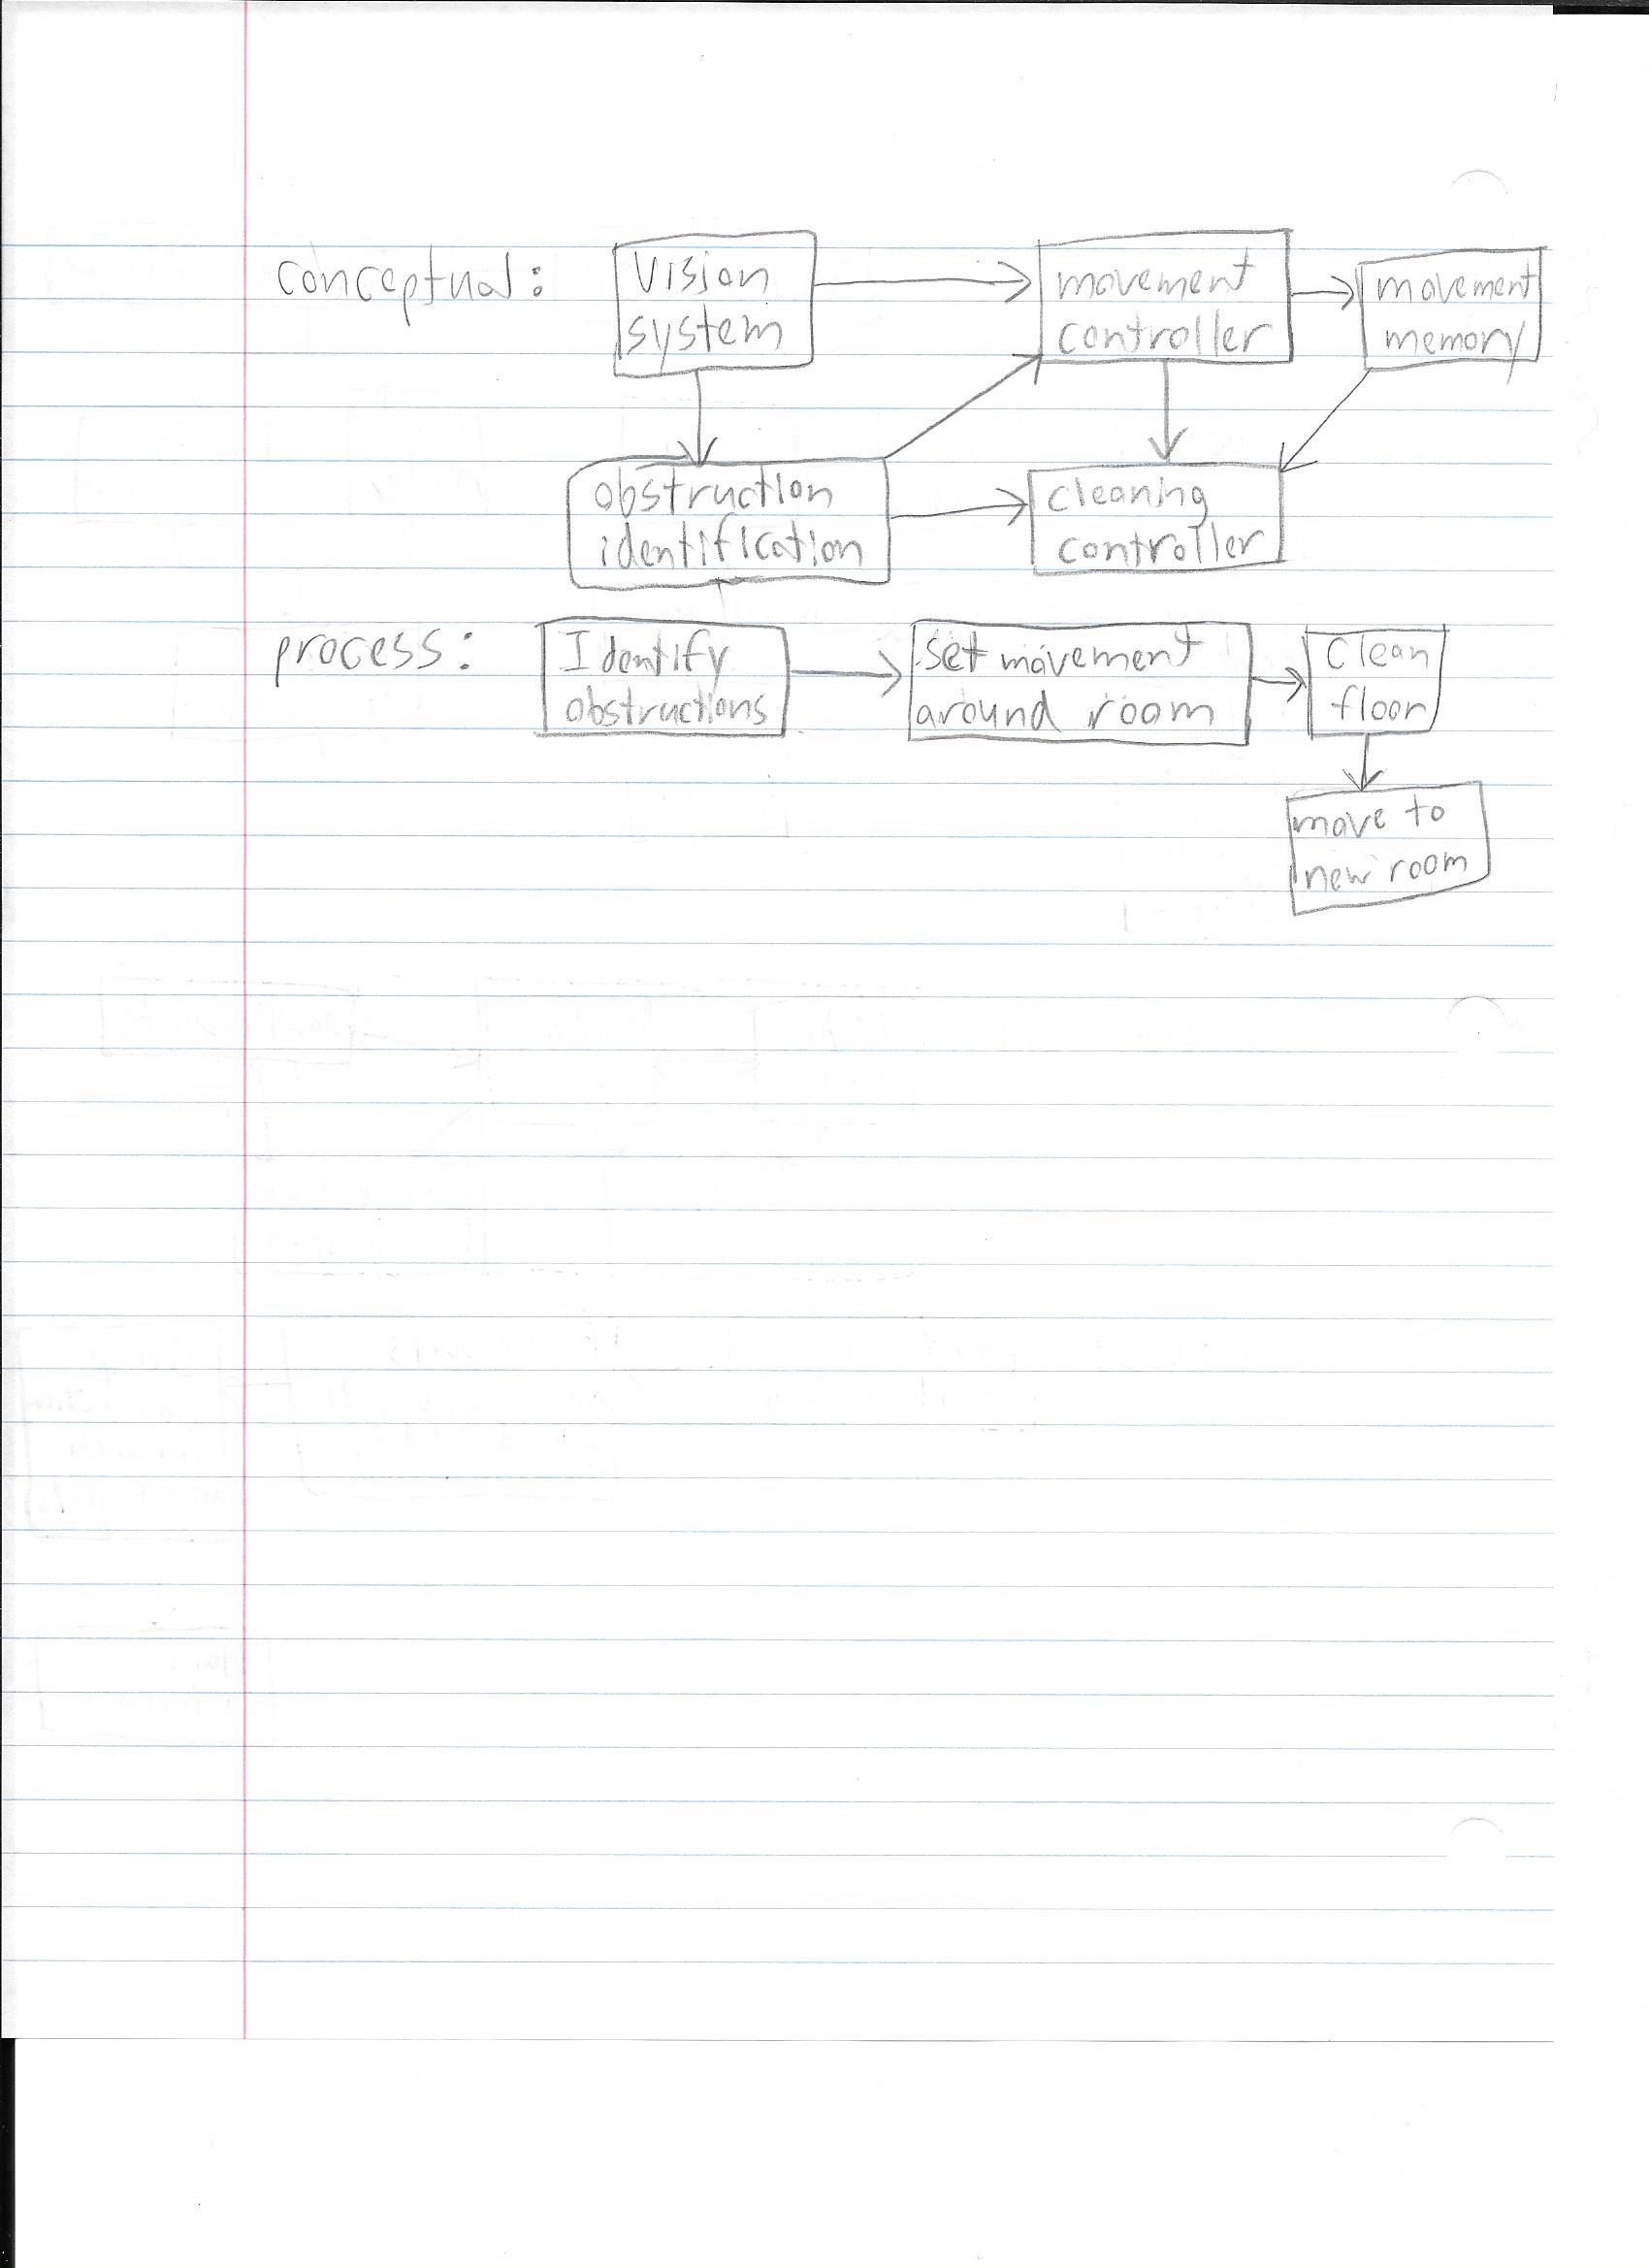 conceptual:
Vision
system
movement
controller
movement
memory
obstruction
identification
cleaning
controller
process:
Identify
obstructions
set movement
around room
Clean
floor
move to
new room